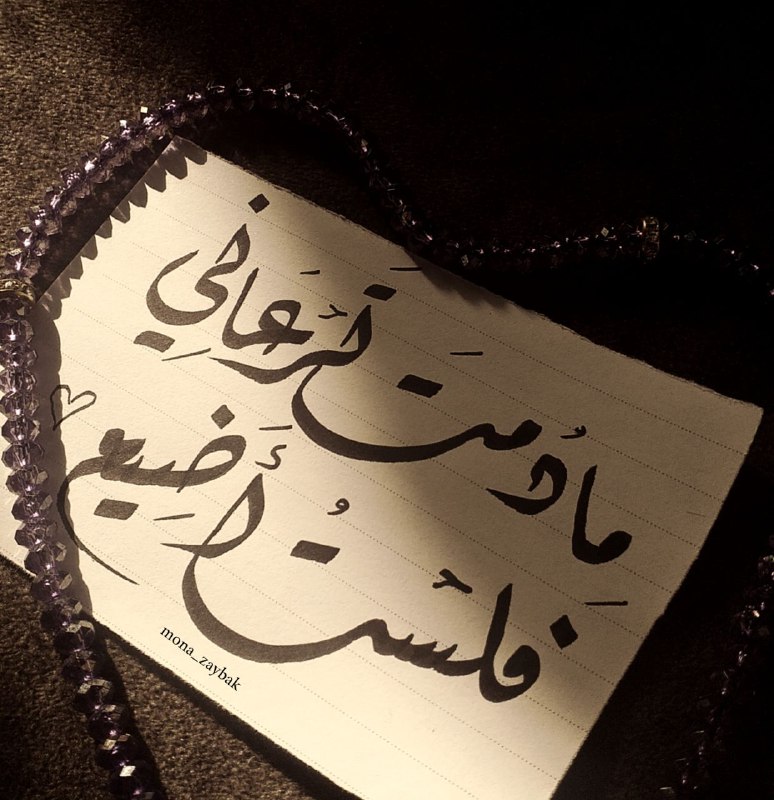 مَا دُمتَ تَرْعَانِي
فَلسْتُ أَضِيع
mona_zaybak